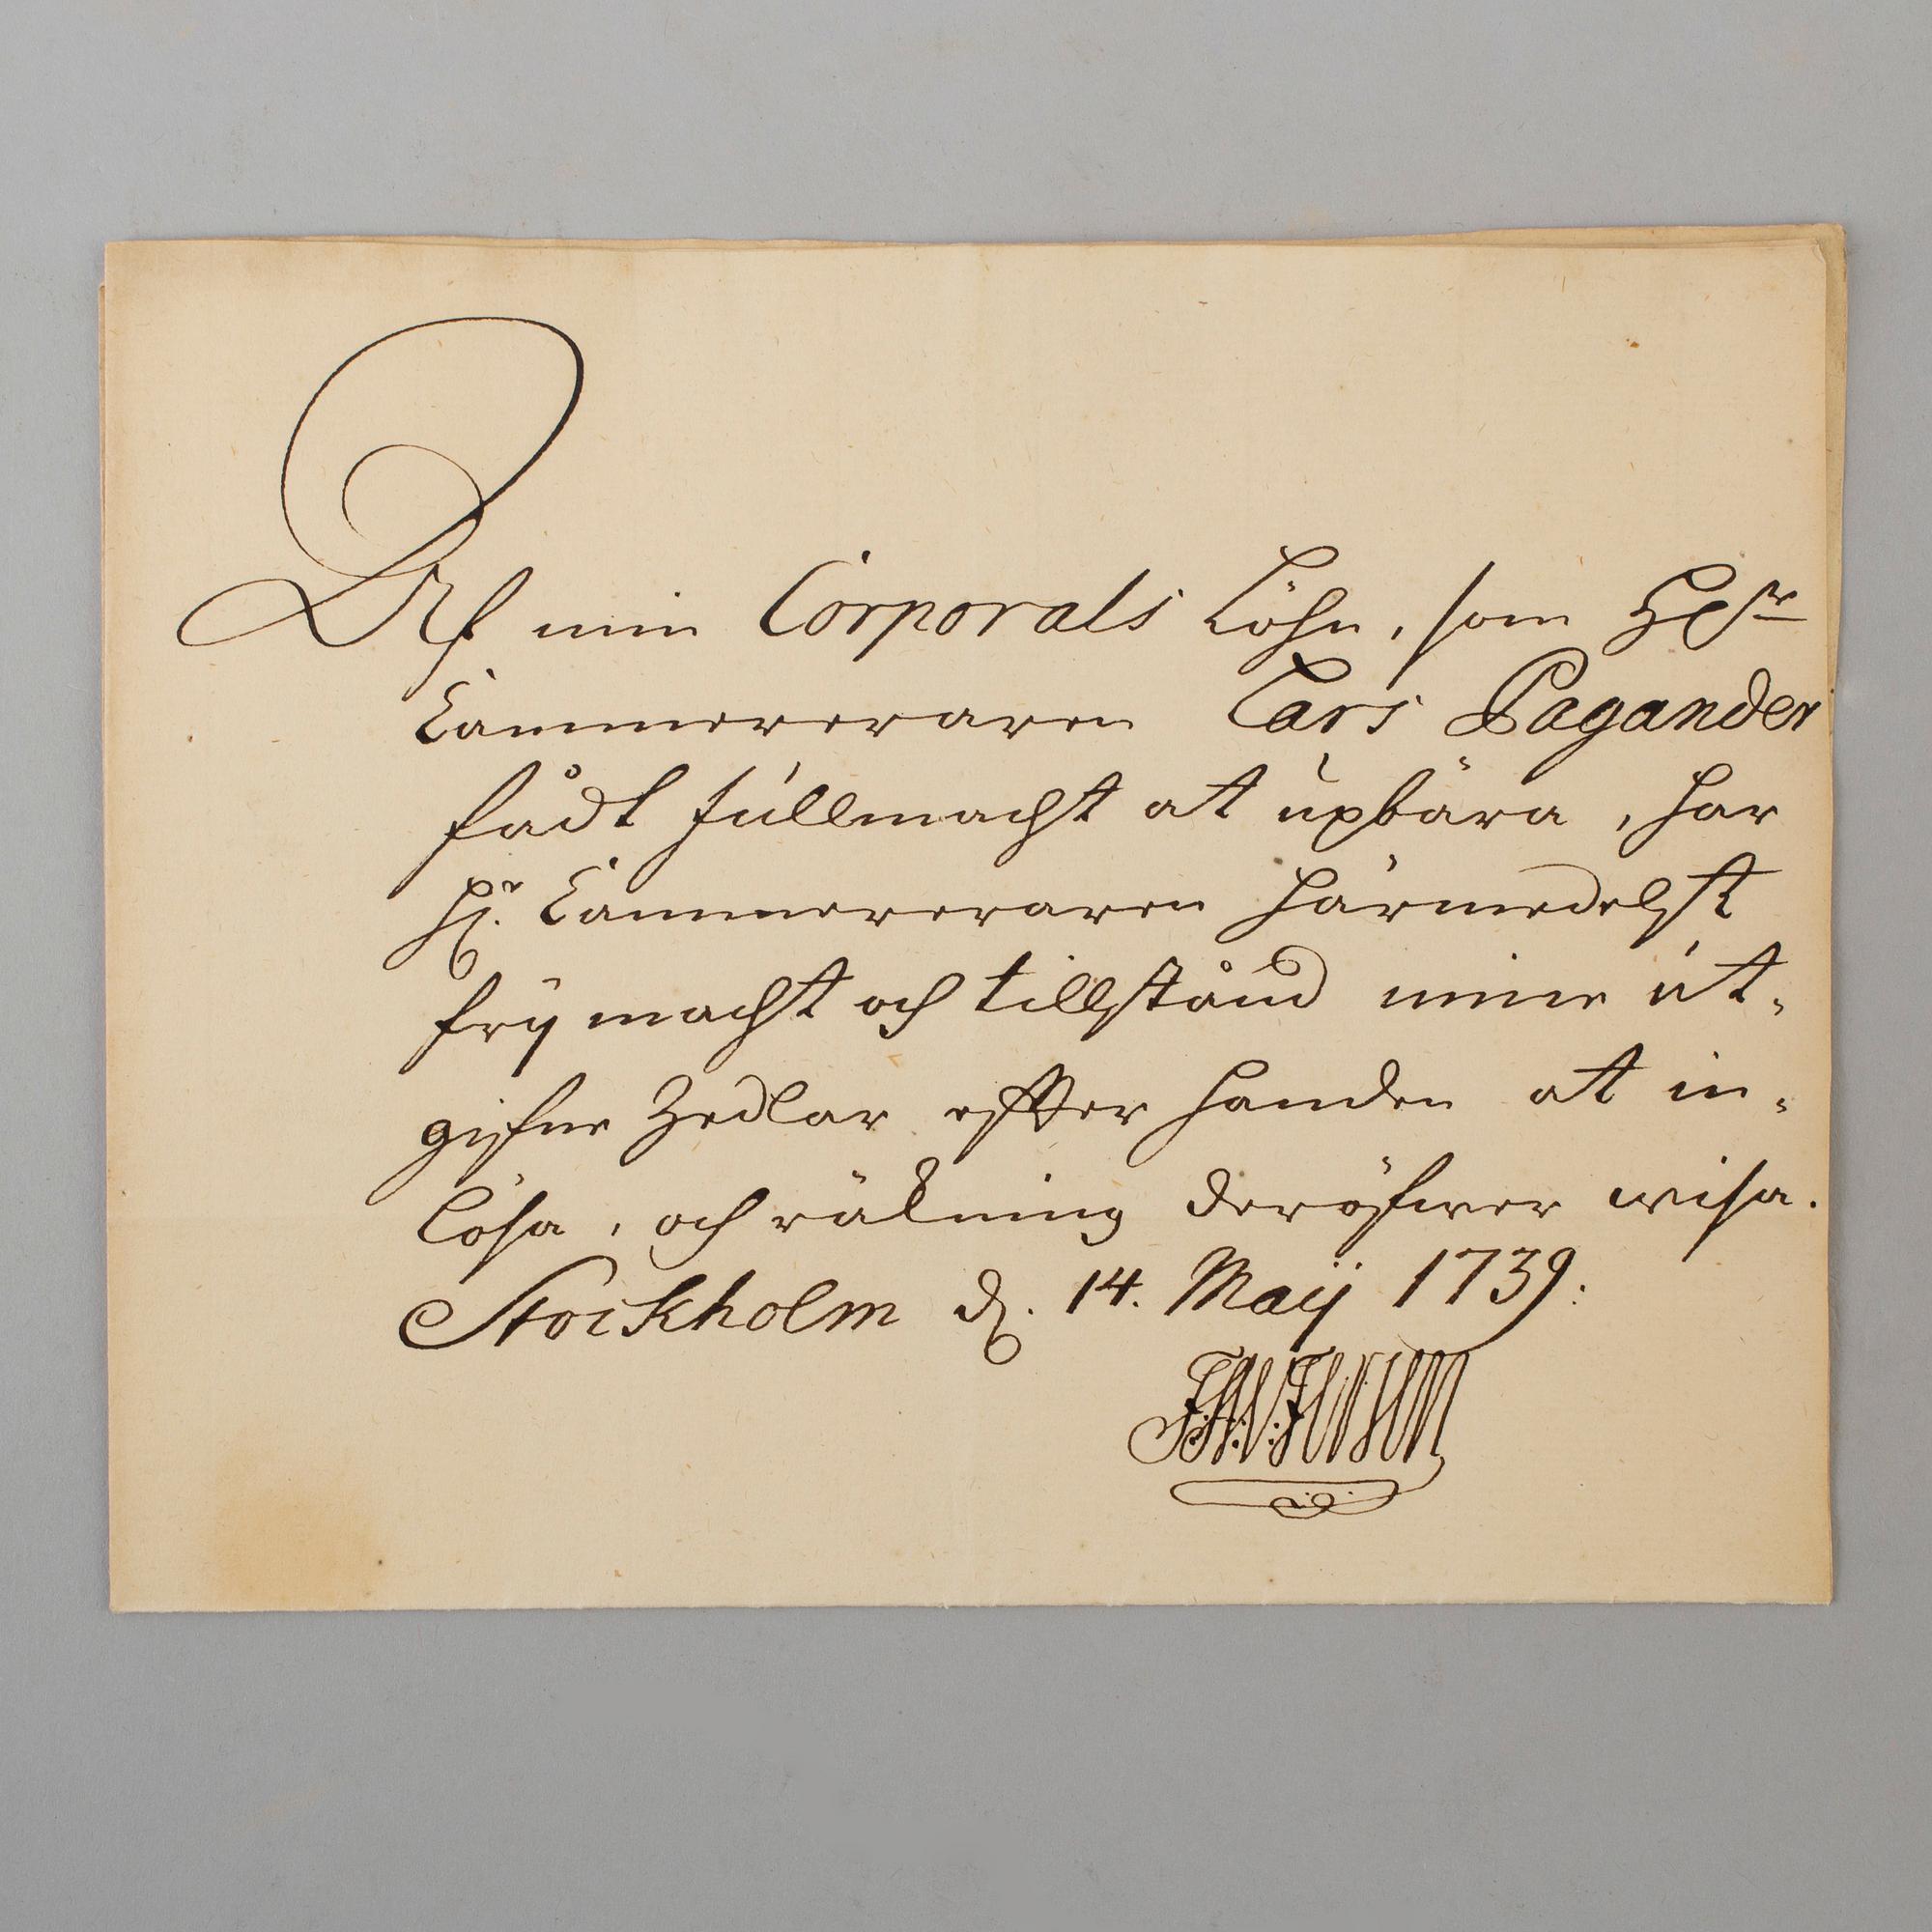 Af min Corporals Löhn, som HErr
Cammereraren Lars Pagander
fådt fullmacht at upbära, har
Hr. Cammereraren härmedelst
frij macht och tillstånd mine ut-
gifne Zedlar effter handen at in-
lösa, och räkning deröfwer wisa.
Stockholm d. 14. Maij 1739: